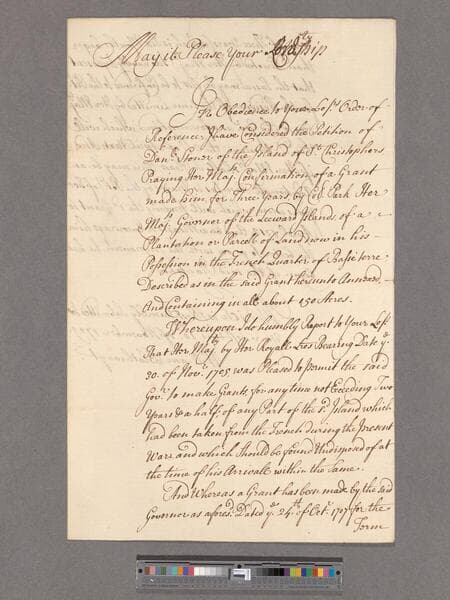 May it Please Your Lordship
In Obedience to Your Losp. Order of
Reference I have Considered the Petition of
Danl. Stoner of the Island of St. Christophers
Praying Her Majts. Confirmation of a Grant
made him for Three Years, by Col. Park Her
Majts. Governor of the Leeward Islands, of a
Plantation or Parcel of Land now in his
Possession in the French Quarter of Basse terre
Described as in the said Grant hereunto Annexed
And Containing in all about 150 Acres.
Whereupon I do humbly Report to Your Losp
That Her Majty by Her Royall Lres Bearing Date ye
30. of Novr. 1705 was Pleased to Permit the said
Govr. to make Grants, for any time not Exceeding Two
Years & a half, of any Part of the sd. Island which
had been taken from the French during the Present
Warr, and which Should be found Undisposed of at
the time of his Arrivall within the Same.
And Whereas a Grant has been made by the said
Governor as aforesd. Dated ye 24th of Octr. 1707 for the
Term